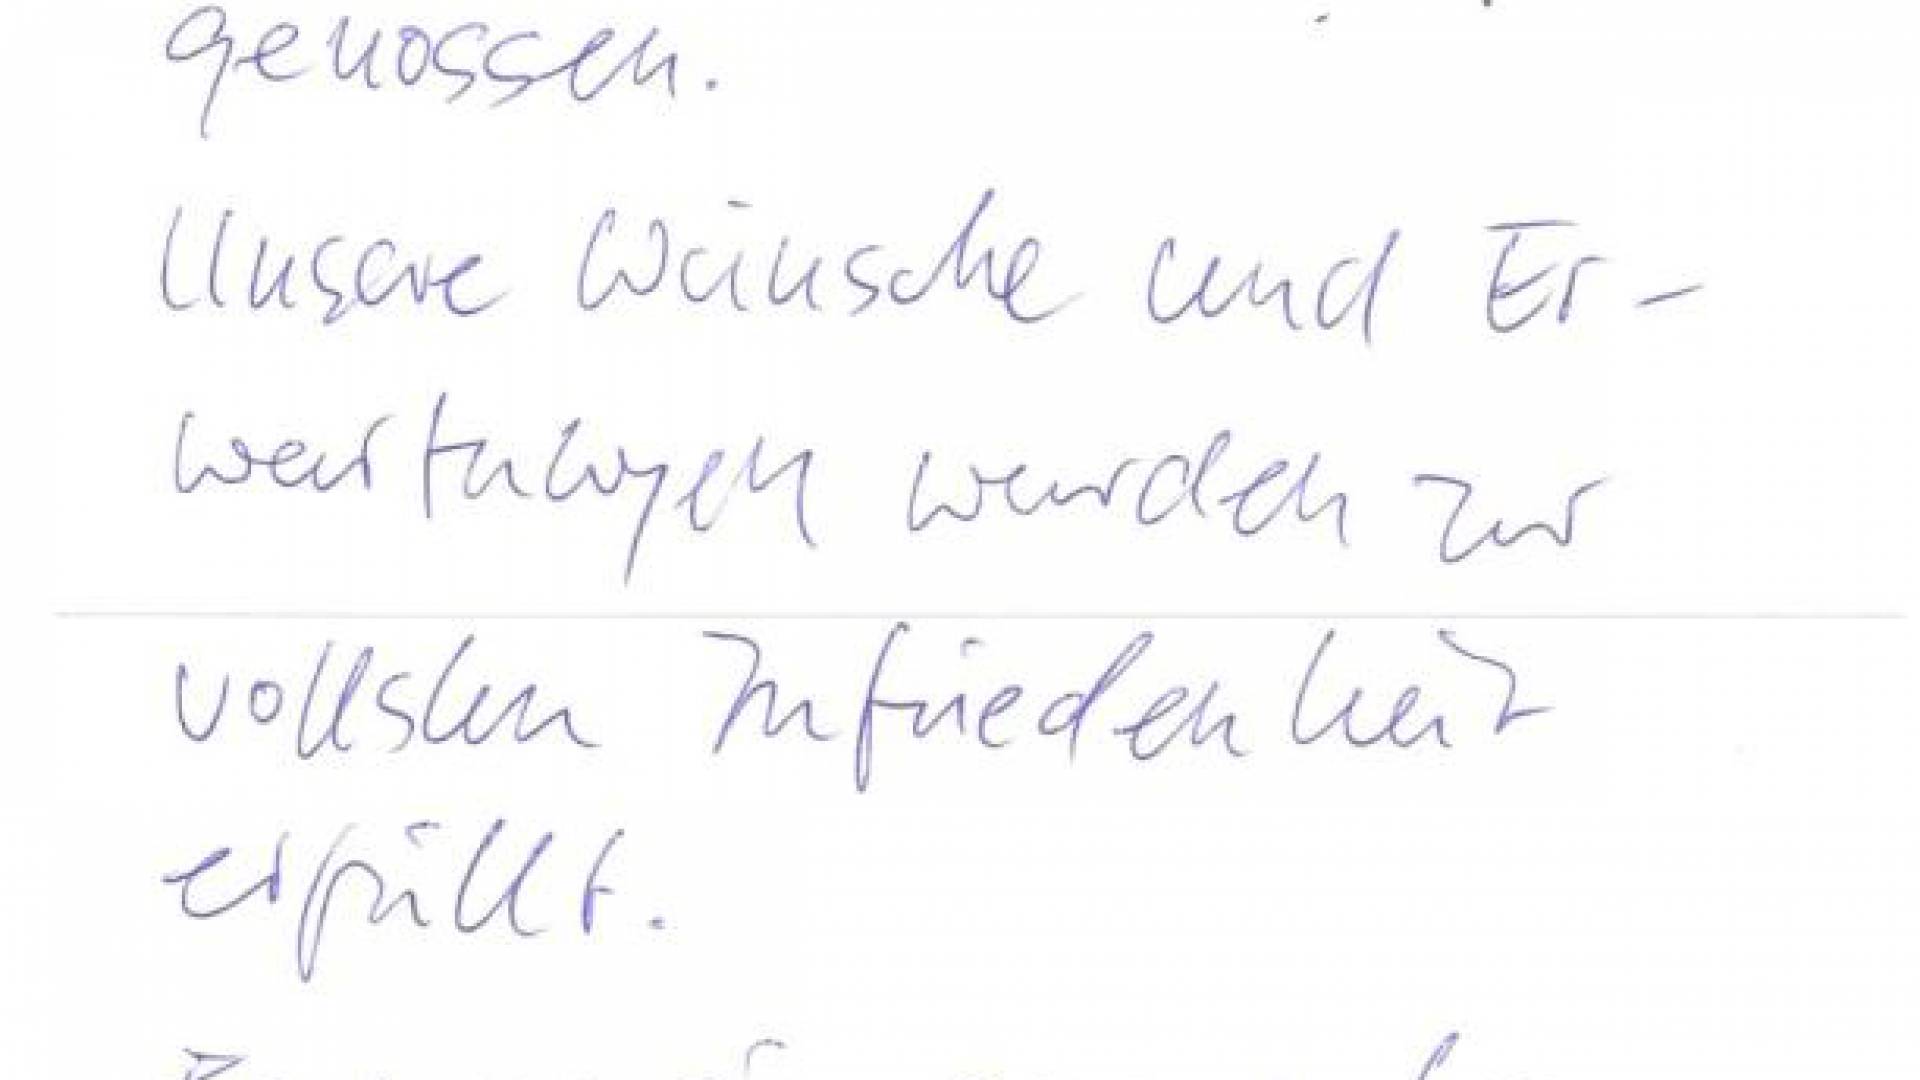 genossen.
Unsere Wünsche und Er-
wartungen wurden zur
vollsten Zufriedenheit
erfüllt.